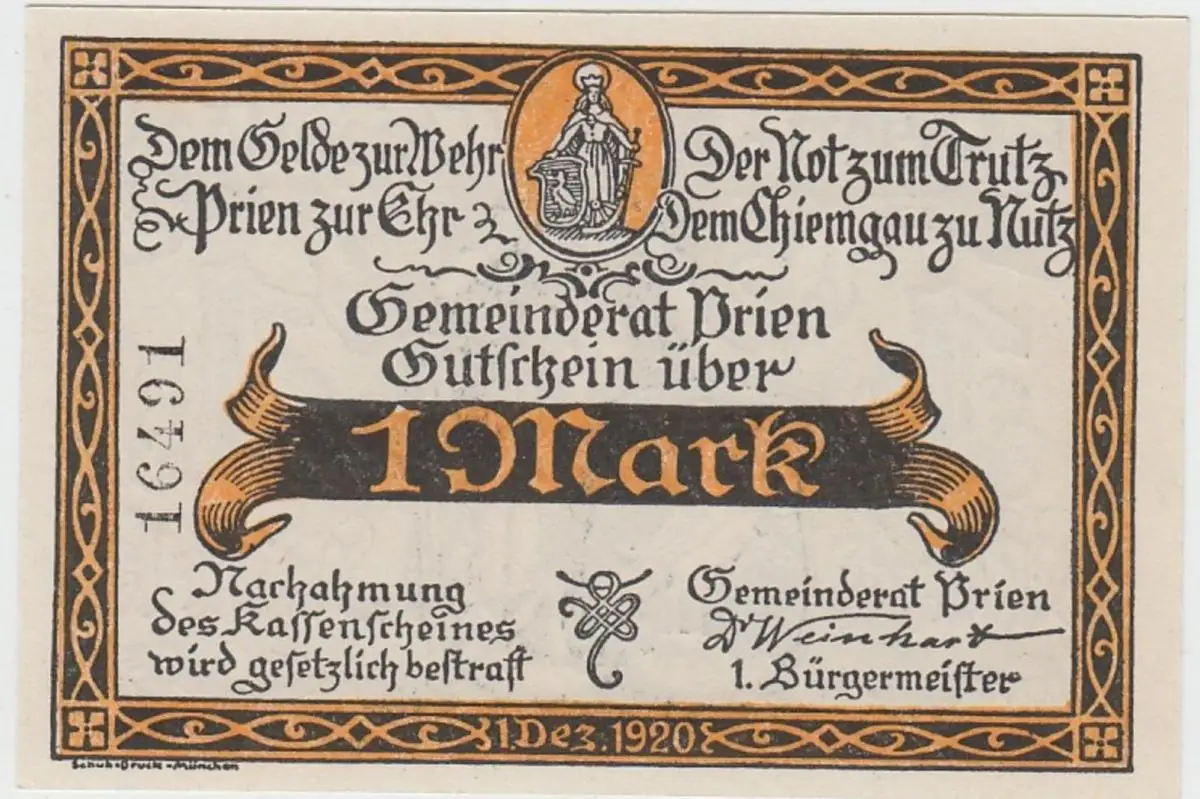 Dem Gelde zur Wehr
Prien zur Ehr
Der Not zum Trutz
Dem Chiemgau zu Nutz
Gemeinderat Prien
Gutschein über
1 Mark
16491
Nachahmung
des Kassenscheines
wird gesetzlich bestraft
Gemeinderat Prien
Dr Weinhart
1. Bürgermeister
1 Dez. 1920
Schuh-Druck-München